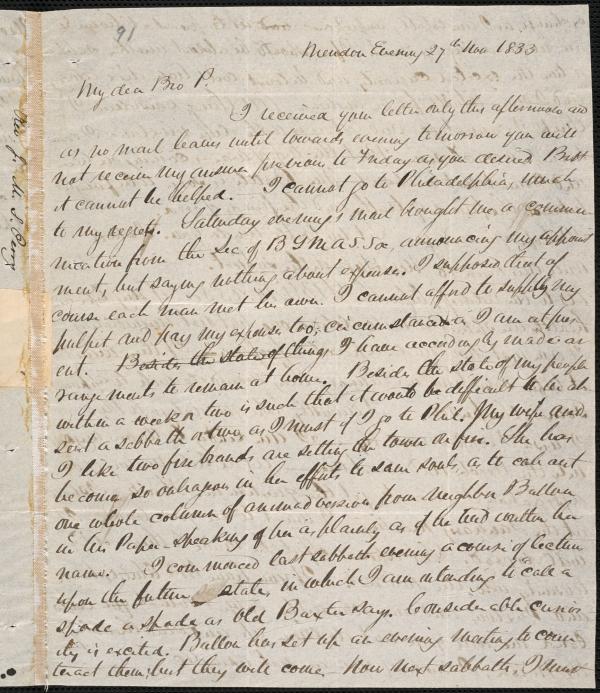 91
Mendon Evening 27th Nov 1833
My dear Bro P.
I received your letter only this afternoon and
as no mail leaves until towards evening tomorrow you will
not receive my answer previous to Friday as you desired But
it cannot be helped. I cannot go to Philadelphia, much
to my regret. Saturday evening's mail brought me a commu-
nication from the Sec of B Y M A S Soc announcing my appoint
ment, but saying nothing about expenses. I supposed that of
course each man met his own. I cannot afford to supply my
pulpit and pay my expenses too, circumstanced as I am at pres
ent. Besides the state of things I have accordingly made ar
rangements to remain at home. Besides the state of my people
within a week or two is such that it would be difficult to be ab
sent a sabbath or two, as I must if I go to Phil. My wife and
I like two fire brands are setting the town on fire. She has
become so outrageous in her efforts to save souls, as to call out
one whole column of animadversion from neighbor Ballou
in his Paper - speaking of her as plainly as if he had written her
name. I commenced last sabbath evening a course of lectures
upon the future state, in which I am intending to "call a
spade a spade" as old Baxter says. Considerable curios
ity is excited. Ballou has set up an evening meeting to coun
teract them, but they will come. Now next sabbath, I must